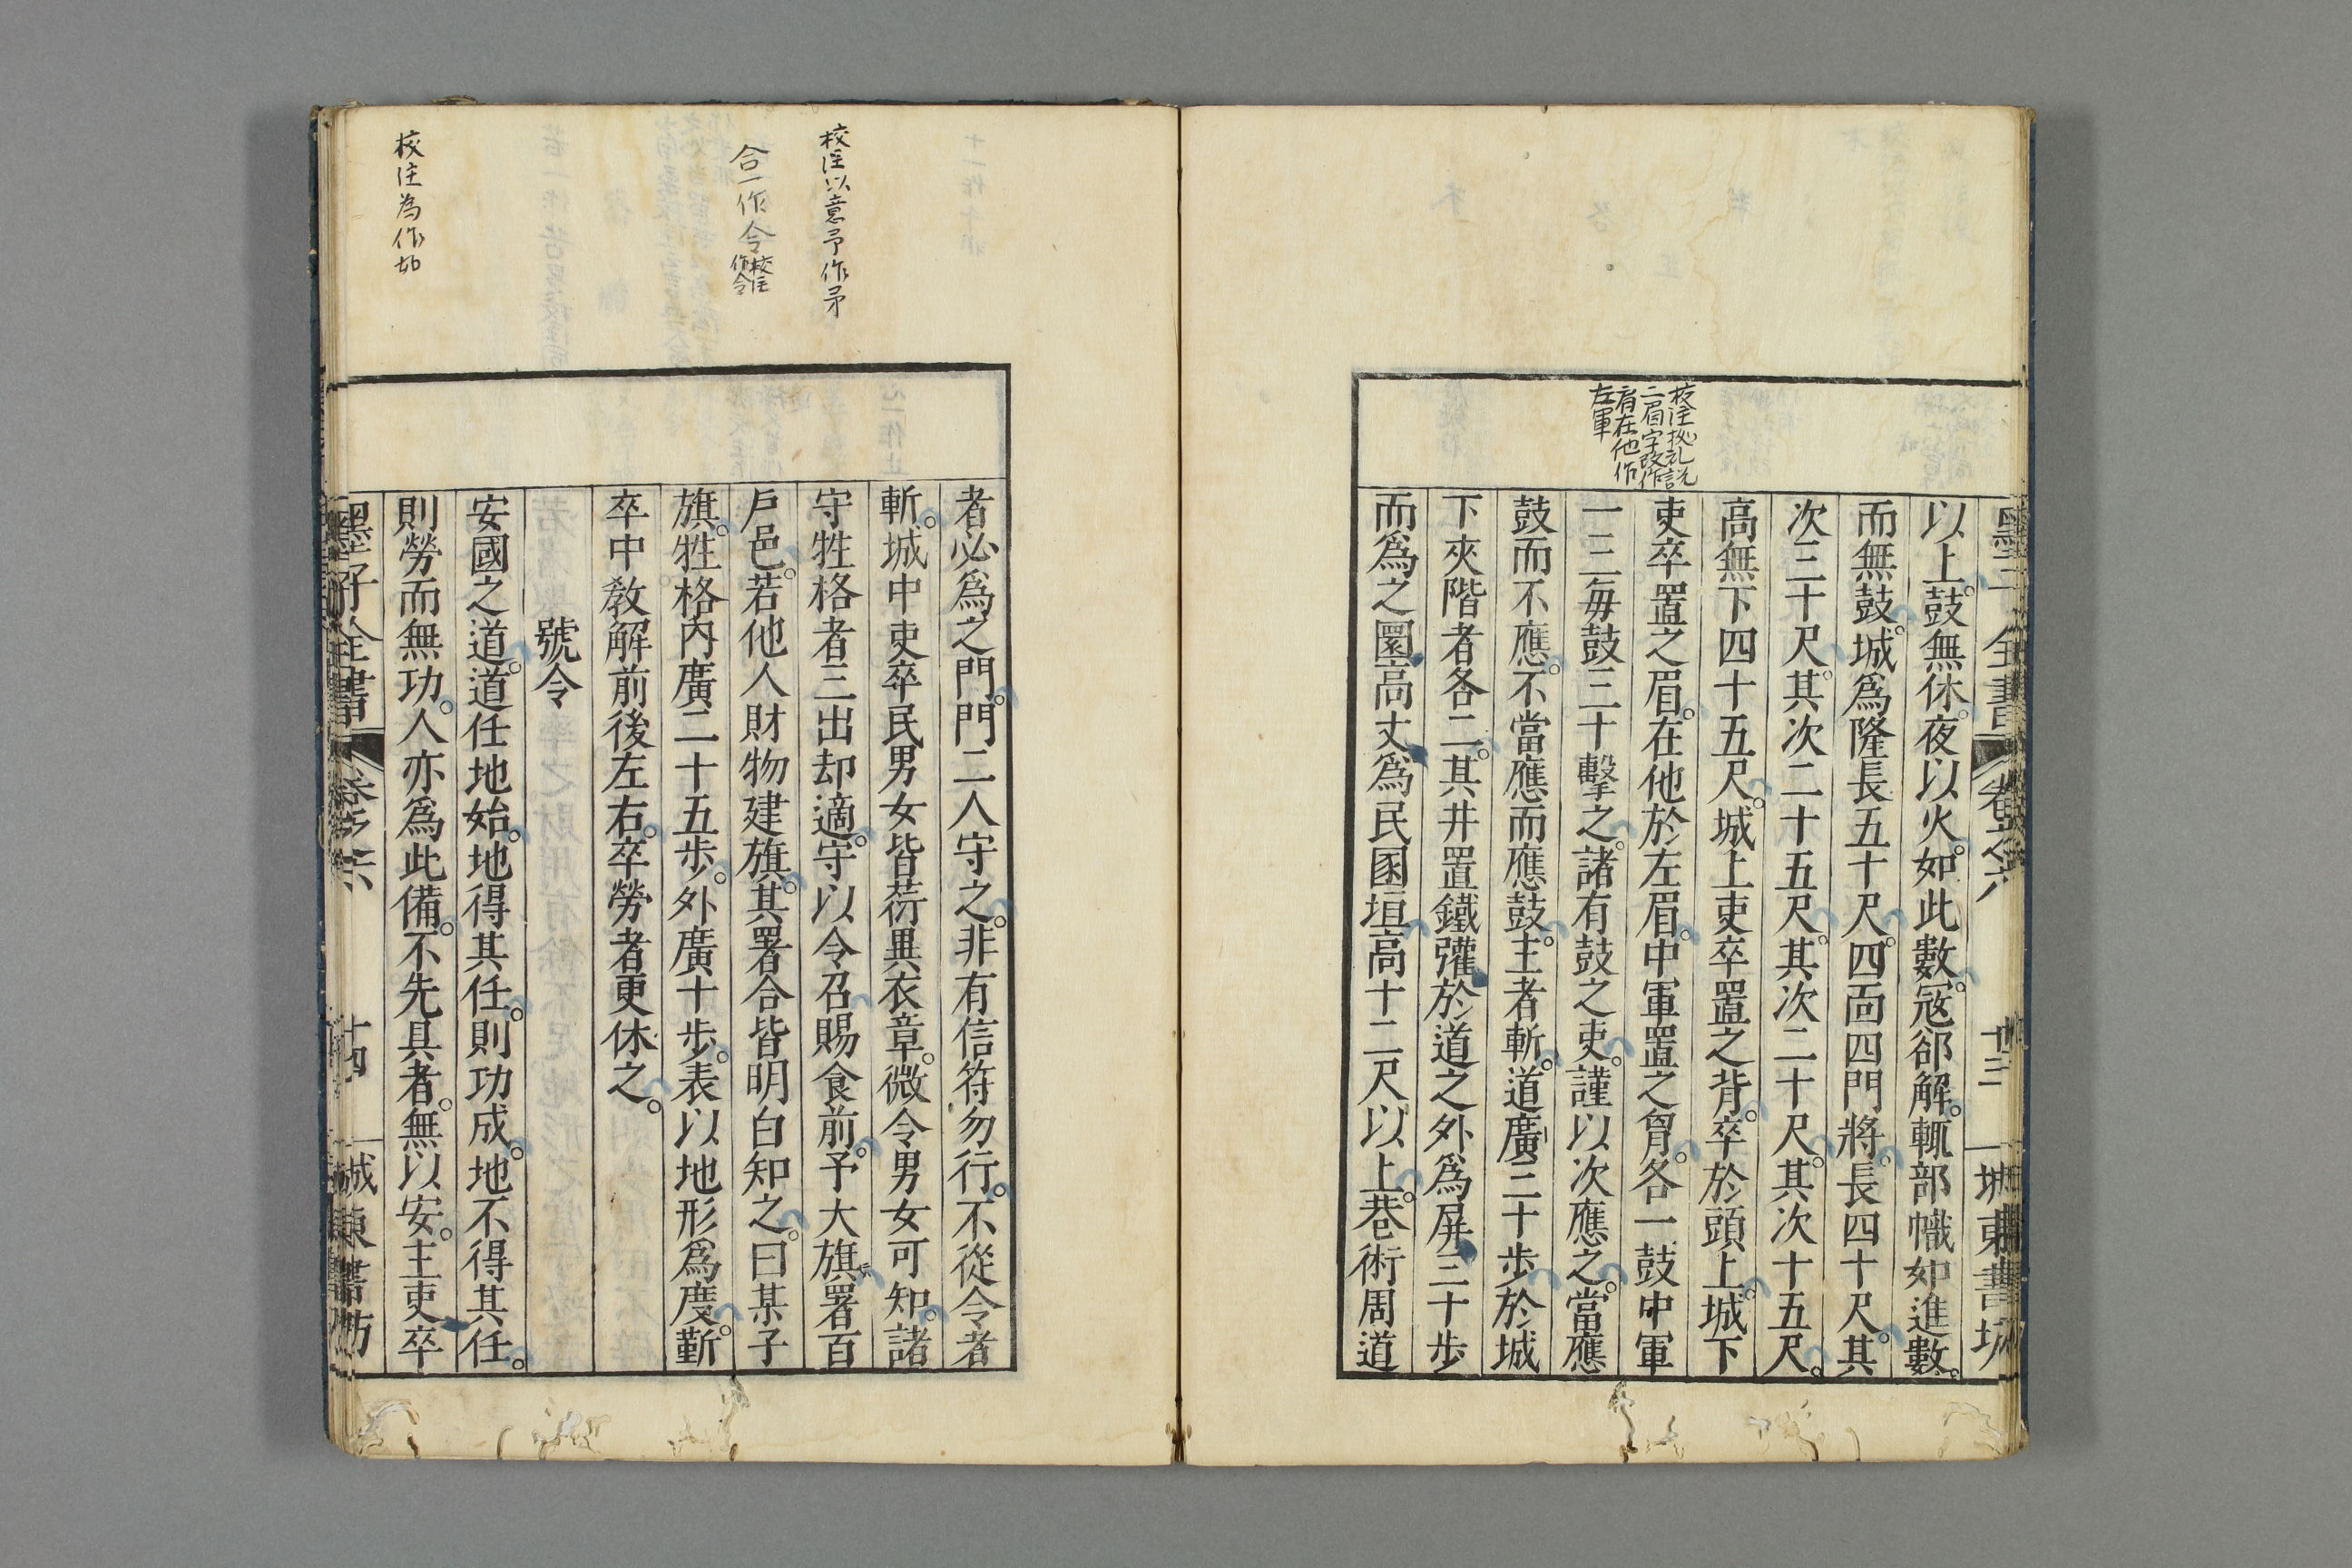 墨子全書 卷之六 十三 城東書坊
以上。鼓無休。夜以火。如此數。寇郤解。輒部幟如進數。
而無鼓。城爲隆長五十尺。四面四門將。長四十尺。其
次三十尺。其次二十五尺。其次二十尺。其次十五尺。
高無下四十五尺。城上吏卒置之背。卒於頭上。城下
吏卒置之眉。在他於左眉。中軍置之胷。各一鼓中軍
一三每鼓三十擊之。諸有鼓之吏。謹以次應之。當應
鼓而不應。不當應而應鼓。主者斬。道廣三十步於城
下夾階者各二。其井置鐵㼬於道之外爲屏三十步
而爲之圜高丈爲民圂垣高十二尺以上。巷術周道
校注拠礼説
二眉字改作
肩在他作
左軍
者必爲之門。門二人守之。非有信符勿行。不從令者
斬。城中吏卒民男女皆荇異衣章。微令男女可知。諸
守牲格者三出却適。守以令召賜食前。予大旗署百
戶邑。若他人財物建旗。其署合皆明白知之。曰某子
旗。牲格內廣二十五步。外廣十步。表以地形爲度。斳
卒中教解前後左右。卒勞者更休之。
號令
安國之道。道任地始。地得其任。則功成。地不得其任。
則勞而無功。人亦爲此備。不先具者。無以安。主吏卒
墨子全書 卷之六 十四 城東書坊
校注以意予作矛
合一作令 校注作令
校注為作如